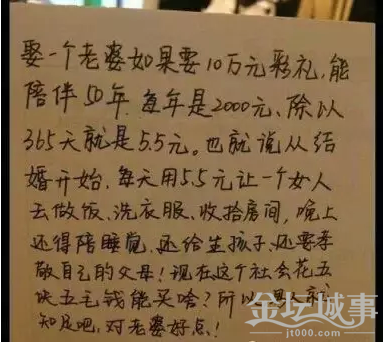 娶一个老婆如果要10万元彩礼,能
陪伴50年.每年是2000元、除以
365天就是5.5元。也就说从结
婚开始.每天用5.5元让一个女人
去做饭、洗衣服、收拾房间,晚上
还得陪睡觉.还给生孩子.还要孝
敬自己的父母!现在这个社会花五
块五毛钱能买啥?所以男人就
知足吧,对老婆好点!
金坛城事
jt000.com